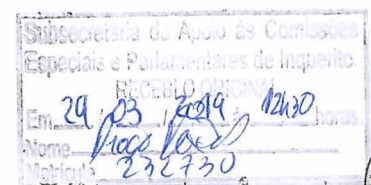 Subsecretaria de Apoio às Comissões
Especiais e Parlamentares de Inquérito.
RECEBI O ORIGINAL
Em 29 / 03 / 2019 às 12h30 horas
Nome
Matrícula 232730